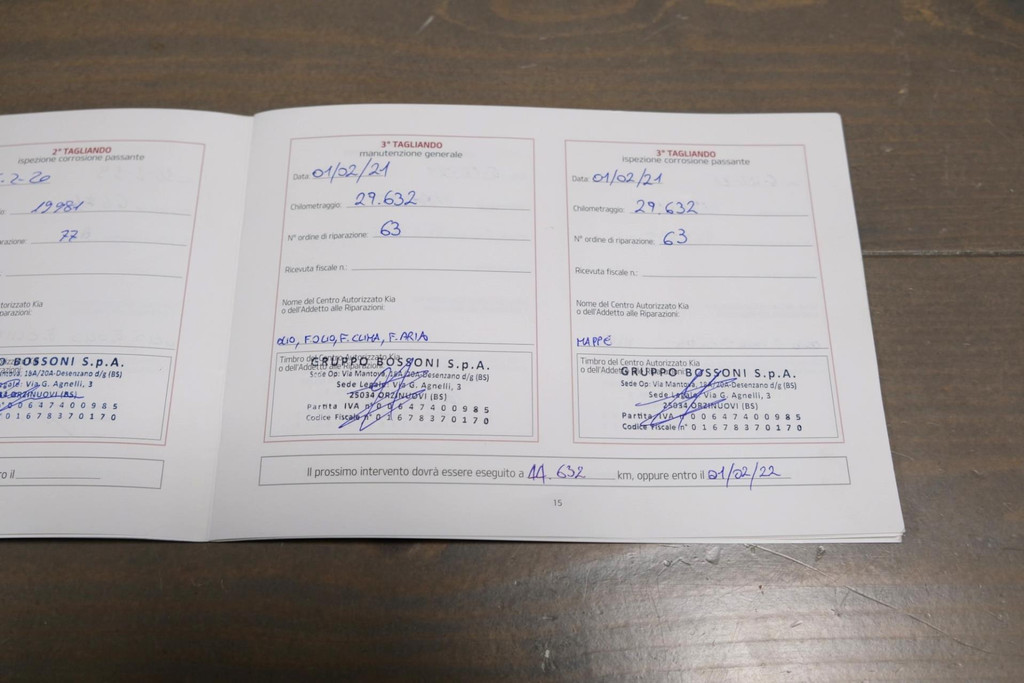 2° TAGLIANDO
ispezione corrosione passante
2-20
19981
77
BOSSONI S.p.A.
18A/20A-Desenzano d/g (BS)
Via G. Agnelli, 3
ORZINUOVI (BS)
0 0 6 4 7 4 0 0 9 8 5
0 1 6 7 8 3 7 0 1 7 0
3° TAGLIANDO
manutenzione generale
Data: 01/02/21
Chilometraggio: 29.632
N° ordine di riparazione: 63
Ricevuta fiscale n.:
Nome del Centro Autorizzato Kia
o dell'Addetto alle Riparazioni:
OLIO, F.OLIO, F. CLIMA, F. ARIA
Timbro del Centro Autorizzato Kia
GRUPPO BOSSONI S.p.A.
Sede Op: Via Mantova, 18A/20A-Desenzano d/g (BS)
Sede Legale: Via G. Agnelli, 3
25034 ORZINUOVI (BS)
Partita IVA n° 0 0 6 4 7 4 0 0 9 8 5
Codice Fiscale n° 0 1 6 7 8 3 7 0 1 7 0
3° TAGLIANDO
ispezione corrosione passante
Data: 01/02/21
Chilometraggio: 29.632
N° ordine di riparazione: 63
Ricevuta fiscale n.:
Nome del Centro Autorizzato Kia
o dell'Addetto alle Riparazioni:
MAPPE
Timbro del Centro Autorizzato Kia
GRUPPO BOSSONI S.p.A.
Sede Op: Via Mantova, 18A/20A-Desenzano d/g (BS)
Sede Legale: Via G. Agnelli, 3
25034 ORZINUOVI (BS)
Partita IVA n° 0 0 6 4 7 4 0 0 9 8 5
Codice Fiscale n° 0 1 6 7 8 3 7 0 1 7 0
Il prossimo intervento dovrà essere eseguito a 44.632 km, oppure entro il 01/02/22
15